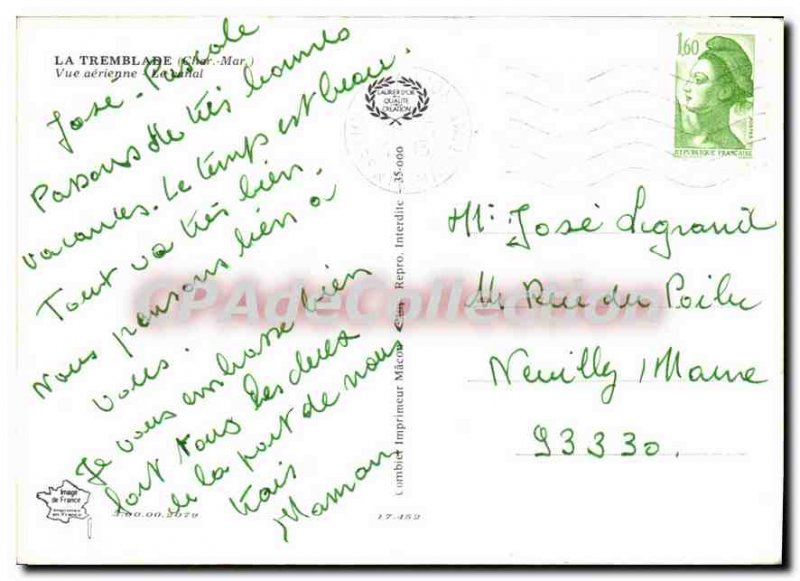 LA TREMBLADE (Char.-Mar.)
Vue aérienne - Le canal
José - Pascale
Passons de très bonnes
vacances. Le temps est beau.
Tout va très bien.
Nous pensons bien à
vous.
Je vous embrasse bien
fort tous les deux
de la part de nous
trois
Maman
LAURIER D'OR
DE LA
QUALITÉ
CRÉATION
1,60
POSTES
REPUBLIQUE FRANÇAISE
Combier Imprimeur Mâcon Repro. Interdite - 35-000
Mr José Legrand
11, Rue du Poilu
Neuilly /Marne
93330.
CPAdeCollection
Image
de France
3.00.00.2079
17-452